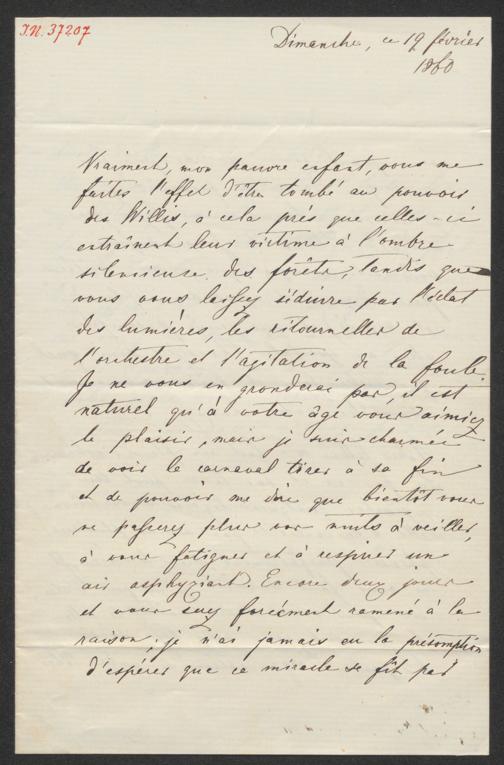 I.N. 37207
Dimanche, ce 19 février
1860
Vraiment, mon pauvre enfant, vous me
faites l'effet d'être tombé au pouvoir
des Willis, à cela près que celles-ci
entraînent leur victime à l'ombre
silencieuse des forêts, tandis que
vous vous laissez séduire par l'éclat
des lumières, les ritournelles de
l'orchestre et l'agitation de la foule.
Je ne vous en gronderai pas, il est
naturel qu'à votre âge vous aimiez
le plaisir, mais je suis charmée
de voir le carnaval tirer à sa fin
et de pouvoir me dire que bientôt vous
ne passerez plus vos nuits à veiller,
à vous fatiguer et à respirer un
air asphyxiant. Encore deux jours
et vous serez forcément ramené à la
raison; je n'ai jamais eu la présomption
d'espérer que ce miracle se fît par